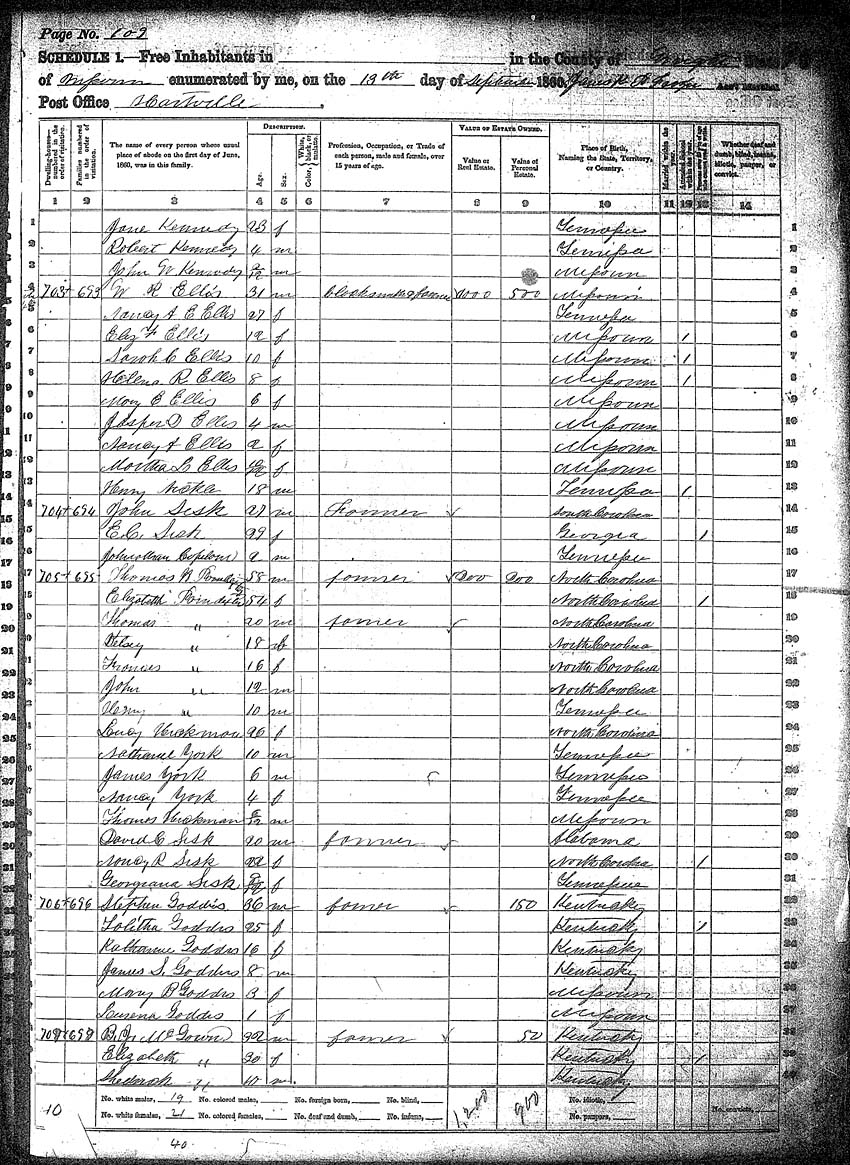 Page No. 109
SCHEDULE 1.—Free Inhabitants in in the County of Wright
of Missouri enumerated by me, on the 19th day of September 1860.
Post Office Hartville
DESCRIPTION. VALUE OF ESTATE OWNED.
Dwelling-houses numbered in the order of visitation. Families numbered in the order of visitation. The name of every person whose usual place of abode on the first day of June, 1860, was in this family. Age. Sex. Color, White, black, or mulatto. Profession, Occupation, or Trade of each person, male and female, over 15 years of age. Value of Real Estate. Value of Personal Estate. Place of Birth, Naming the State, Territory, or Country. Married within the year. Attended School within the year. Whether deaf and dumb, blind, insane, idiotic, pauper, or convict.
1 2 3 4 5 6 7 8 9 10 11 12 13 14
1 Jane Kennedy 23 f Tennessee 1
2 Robert Kennedy 4 m Tennessee 2
3 John W Kennedy m Missouri 3
4 703 693 W R Ellis 31 m blacksmith & farmer 1000 500 Missouri 4
5 Nancy A E Ellis 27 f Tennessee 5
6 Eliz F Ellis 12 f Missouri 1 6
7 Sarah C Ellis 10 f Missouri 1 7
8 Helena R Ellis 8 f Missouri 1 8
9 Mary E Ellis 6 f Missouri 9
10 Jasper D Ellis 4 m Missouri 10
11 Nancy A Ellis 2 f Missouri 11
12 Martha L Ellis f Missouri 12
13 Henry 18 m Tennessee 1 13
14 704 694 John Sisk 27 m Farmer South Carolina 14
15 E. C. Sisk 29 f Georgia 1 15
16 Johnathan 2 m Tennessee 16
17 705 695 Thomas N Poindexter 58 m farmer 200 200 North Carolina 17
18 Elizabeth Poindexter 54 f North Carolina 1 18
19 Thomas " 20 m farmer North Carolina 19
20 " 18 North Carolina 20
21 Frances " 16 f North Carolina 21
22 John " 12 m North Carolina 22
23 Henry " 10 m Tennessee 23
24 Lucy Hickman 26 f North Carolina 24
25 Nathaniel York 10 m Tennessee 25
26 James York 6 m Tennessee 26
27 Nancy York 4 f Tennessee 27
28 Thomas Hickman m Missouri 28
29 David C Sisk 20 m farmer Alabama 29
30 Nancy R Sisk 22 f North Carolina 1 30
31 Georgiana Sisk f Tennessee 31
32 706 696 Stephen Goddis 36 m farmer 150 Kentucky 32
33 Talitha Goddis 25 f Kentucky 1 33
34 Katharine Goddis 16 f Kentucky 34
35 James S. Goddis 8 m Kentucky 35
36 Mary P Goddis 3 f Missouri 36
37 Lurena Goddis 1 f Missouri 37
38 McGown m farmer 50 Kentucky 38
39 Elizabeth " 30 f Kentucky 1 39
40 Shedrach " 10 m Kentucky 40
No. white males, 19 No. colored males, No. foreign born, No. blind, 1,200 900 No. idiotic,
10 No. white females, 21 No. colored females, No. deaf and dumb, No. insane, No. paupers, No. convicts,
40